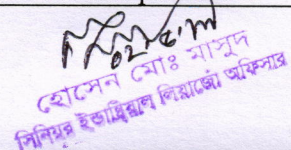 হোসেন মোঃ মাসুদ
সিনিয়র ইন্ডাস্ট্রিয়াল লিয়াজোঁ অফিসার